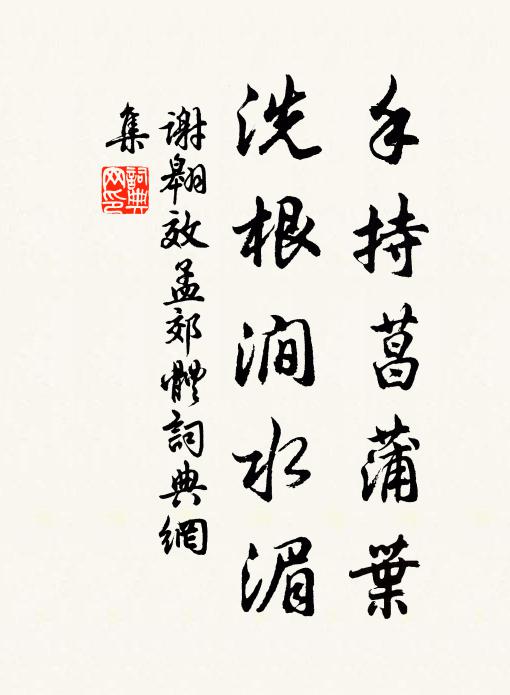 手持菖蒲葉
洗根澗水湄
謝翱效孟郊體詞典網
集
詞典網印